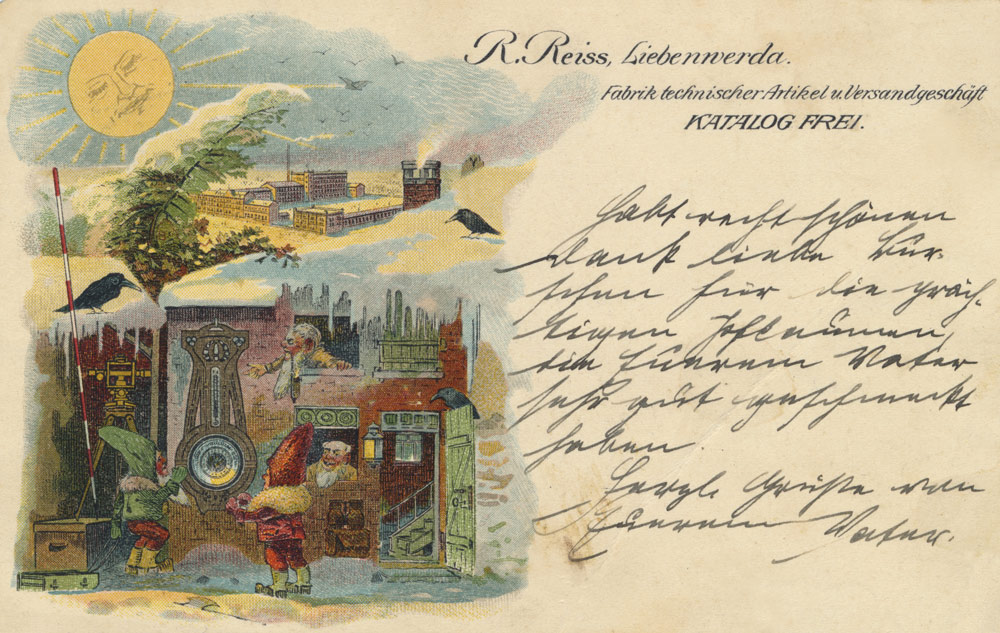 R. Reiss, Liebenwerda.
Fabrik technischer Artikel u. Versandgeschäft
KATALOG FREI.
Habt recht schönen
Dank liebe Bur-
schen für die präch-
tigen
die Euerem Vater
sehr gut geschmeckt
haben.
Herzl. Grüße von
Euerem Vater.